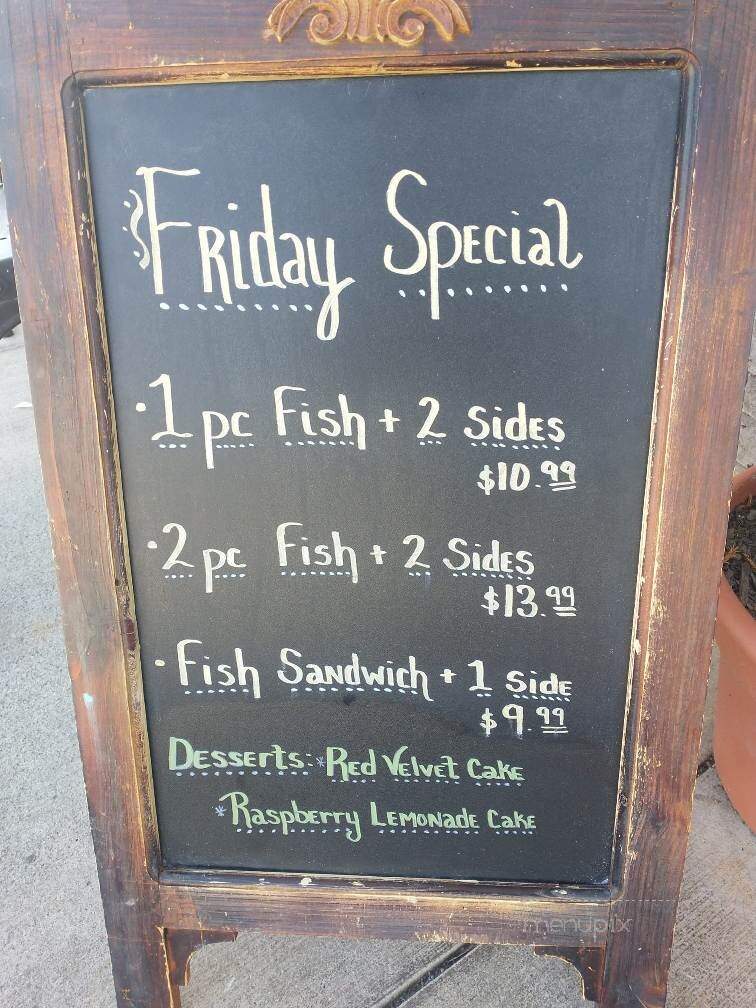 Friday Special
·1 pc Fish + 2 Sides
$10.99
·2 pc Fish + 2 Sides
$13.99
·Fish Sandwich + 1 Side
$9.99
Desserts: *Red Velvet Cake
*Raspberry Lemonade Cake
menupix